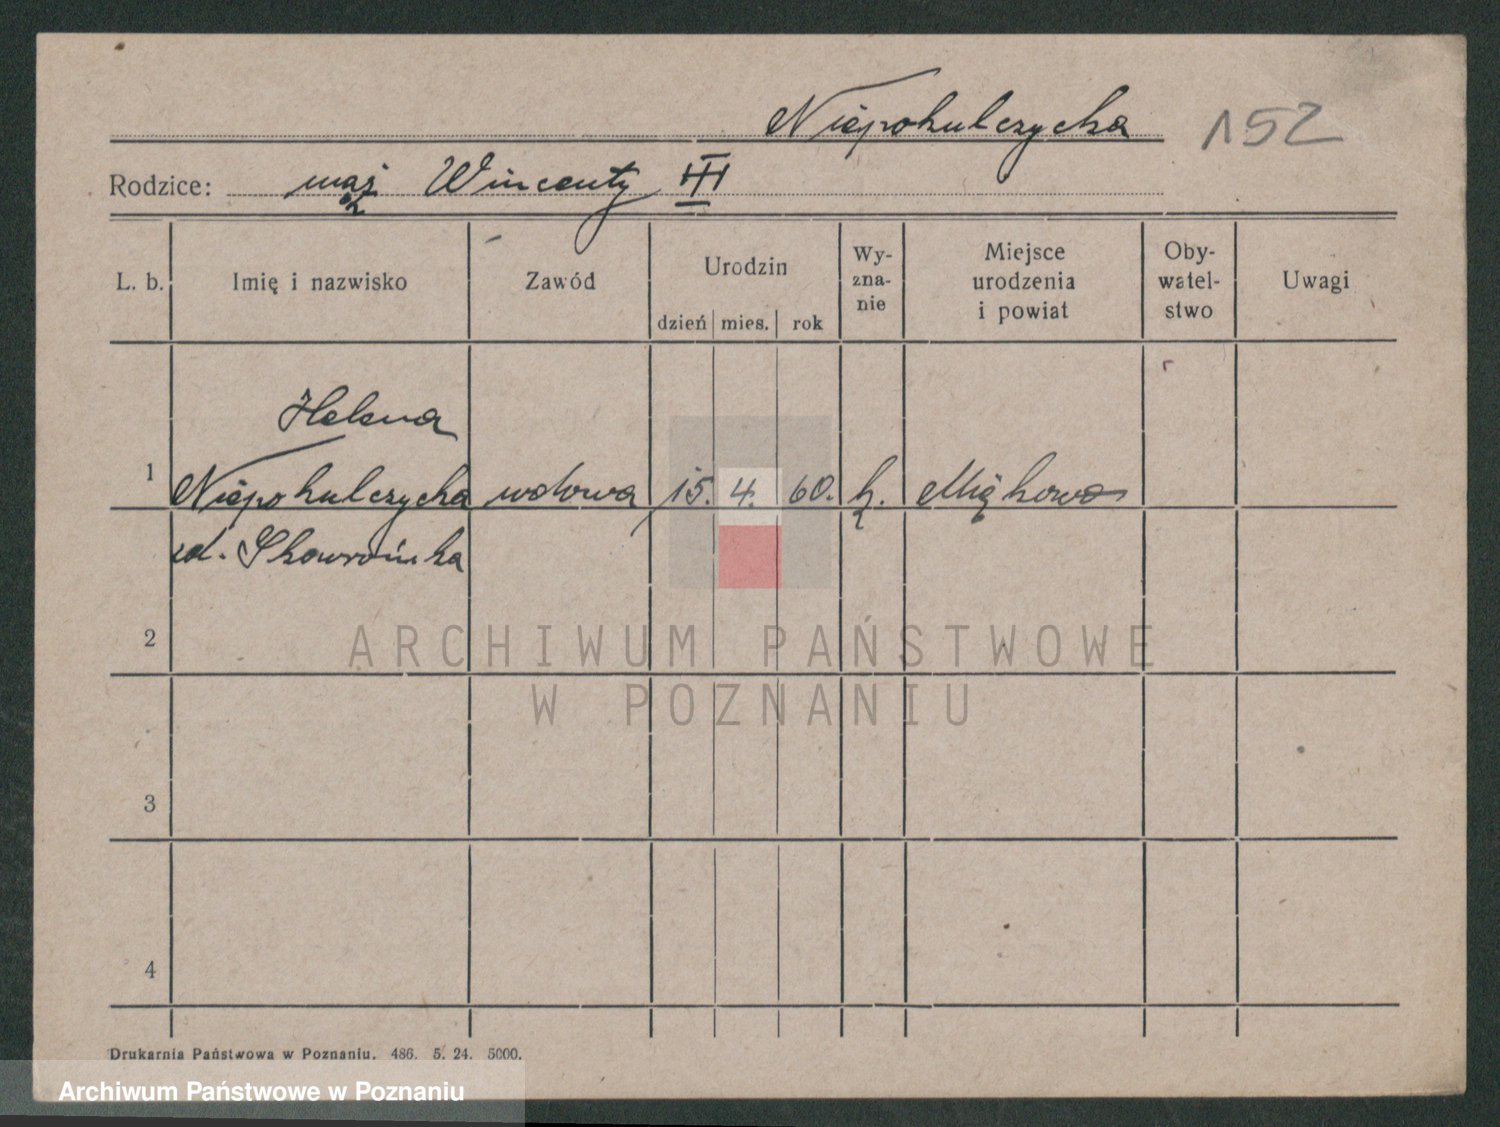 Niepokulczycka 152
Rodzice: mąż Wincenty III
L. b.
Imię i nazwisko
Zawód
Urodzin
dzień mies. rok
Wy-
zna-
nie
Miejsce
urodzenia
i powiat
Oby-
watel-
stwo
Uwagi
Helena
1 Niepokulczycka wdowa 15. 4. 60. k.
zd. Skowrońska
2
3
4
ARCHIWUM PAŃSTWOWE
W POZNANIU
Drukarnia Państwowa w Poznaniu. 486. 5. 24. 5000.
Archiwum Państwowe w Poznaniu